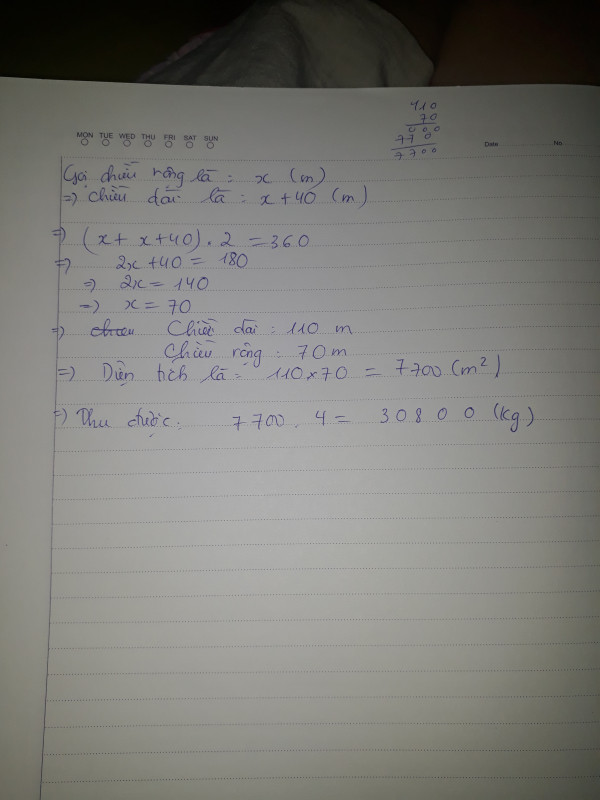 110
70
000
770
7700
MON TUE WED THU FRI SAT SUN
Date No.
Gọi chiều rộng là : x (m)
=> chiều dài là : x + 40 (m)
=> (x + x + 40) . 2 = 360
=> 2x + 40 = 180
=> 2x = 140
=> x = 70
=> Chiều dài : 110 m
Chiều rộng : 70 m
=> Diện tích là : 110 x 70 = 7700 (m²)
=> Thu được : 7700 . 4 = 30800 (kg)